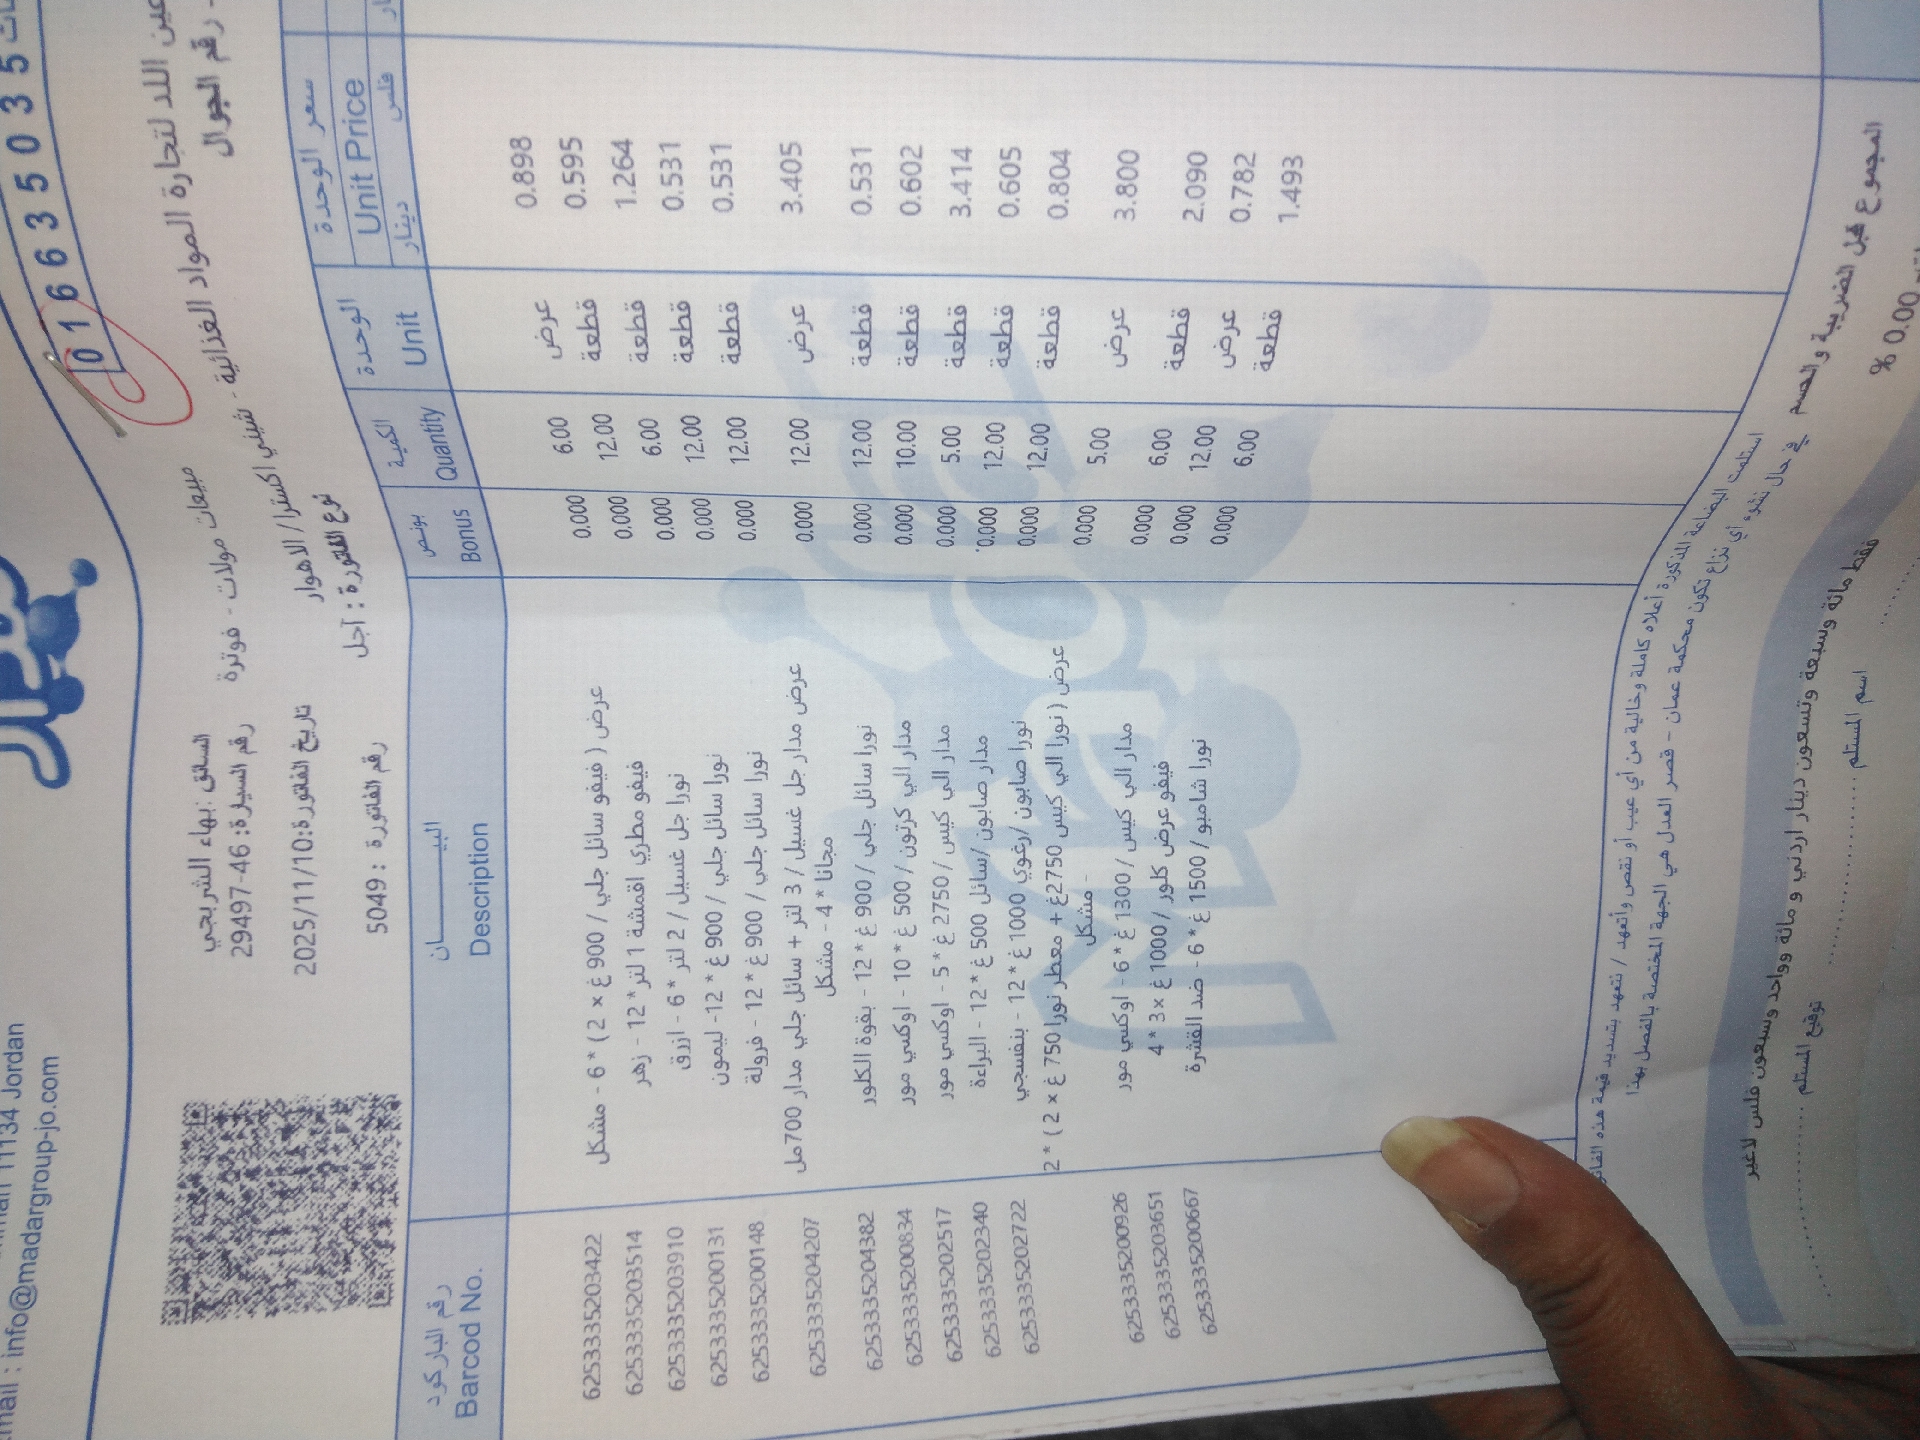 01663503 5
mail : info@madargroup-jo.com
السائق :بهاء الشربجي
مبيعات مولات - فوترة
عين اللد لتجارة المواد الغذائية - شيني اكسترا / الاهوار
رقم السيارة: 46-29497
- رقم الجوال
تاريخ الفاتورة:2025/11/10
نوع الفاتورة : آجل
رقم الفاتورة : 5049
رقم الباركود البيـــــان بونص الكمية الوحدة سعر الوحدة
Barcod No. Description Bonus Quantity Unit Unit Price
دينار فلس
6253335203422 عرض ( فيفو سائل جلي / 900 غ x 2 ) * 6 - مشكل 0.000 6.00 عرض 0.898
6253335203514 فيفو مطري اقمشة 1 لتر * 12 - زهر 0.000 12.00 قطعة 0.595
6253335203910 نورا جل غسيل / 2 لتر * 6 - ازرق 0.000 6.00 قطعة 1.264
6253335200131 نورا سائل جلي / 900 غ * 12- ليمون 0.000 12.00 قطعة 0.531
6253335200148 نورا سائل جلي / 900 غ * 12 - فرولة 0.000 12.00 قطعة 0.531
6253335204207 عرض مدار جل غسيل / 3 لتر + سائل جلي مدار 700مل 0.000 12.00 عرض 3.405
مجانا * 4 - مشكل
6253335204382 نورا سائل جلي / 900 غ * 12 - بقوة الكلور 0.000 12.00 قطعة 0.531
6253335200834 مدار الي كرتون / 500 غ * 10 - اوكسي مور 0.000 10.00 قطعة 0.602
6253335202517 مدار الي كيس / 2750 غ * 5 - اوكسي مور 0.000 5.00 قطعة 3.414
6253335202340 مدار صابون /سائل 500 غ * 12 - البراءة 0.000 12.00 قطعة 0.605
6253335202722 نورا صابون /رغوي 1000 غ * 12 - بنفسجي 0.000 12.00 قطعة 0.804
عرض ( نورا الي كيس 2750غ + معطر نورا 750 غ x 2 ) * 2 0.000 5.00 عرض 3.800
- مشكل
6253335200926 مدار الي كيس / 1300 غ * 6 - اوكسي مور 0.000 6.00 قطعة 2.090
6253335203651 فيفو عرض كلور / 1000 غ x 3 * 4 0.000 12.00 عرض 0.782
6253335200667 نورا شامبو / 1500 غ * 6 - ضد القشرة 0.000 6.00 قطعة 1.493
استلمت البضاعة المذكورة أعلاه كاملة وخالية من أي عيب أو نقص وأتعهد / نتعهد بتسديد قيمة هذه
في حال نشوء أي نزاع تكون محكمة عمان - قصر العدل هي الجهة المختصة بالفصل بهذا
المجموع قبل الضريبة و الحسم
فقط مائة وسبعة وتسعون دينار اردني و مائة وواحد وسبعون فلس لاغير
% 0.00
اسم المستلم
توقيع المستلم